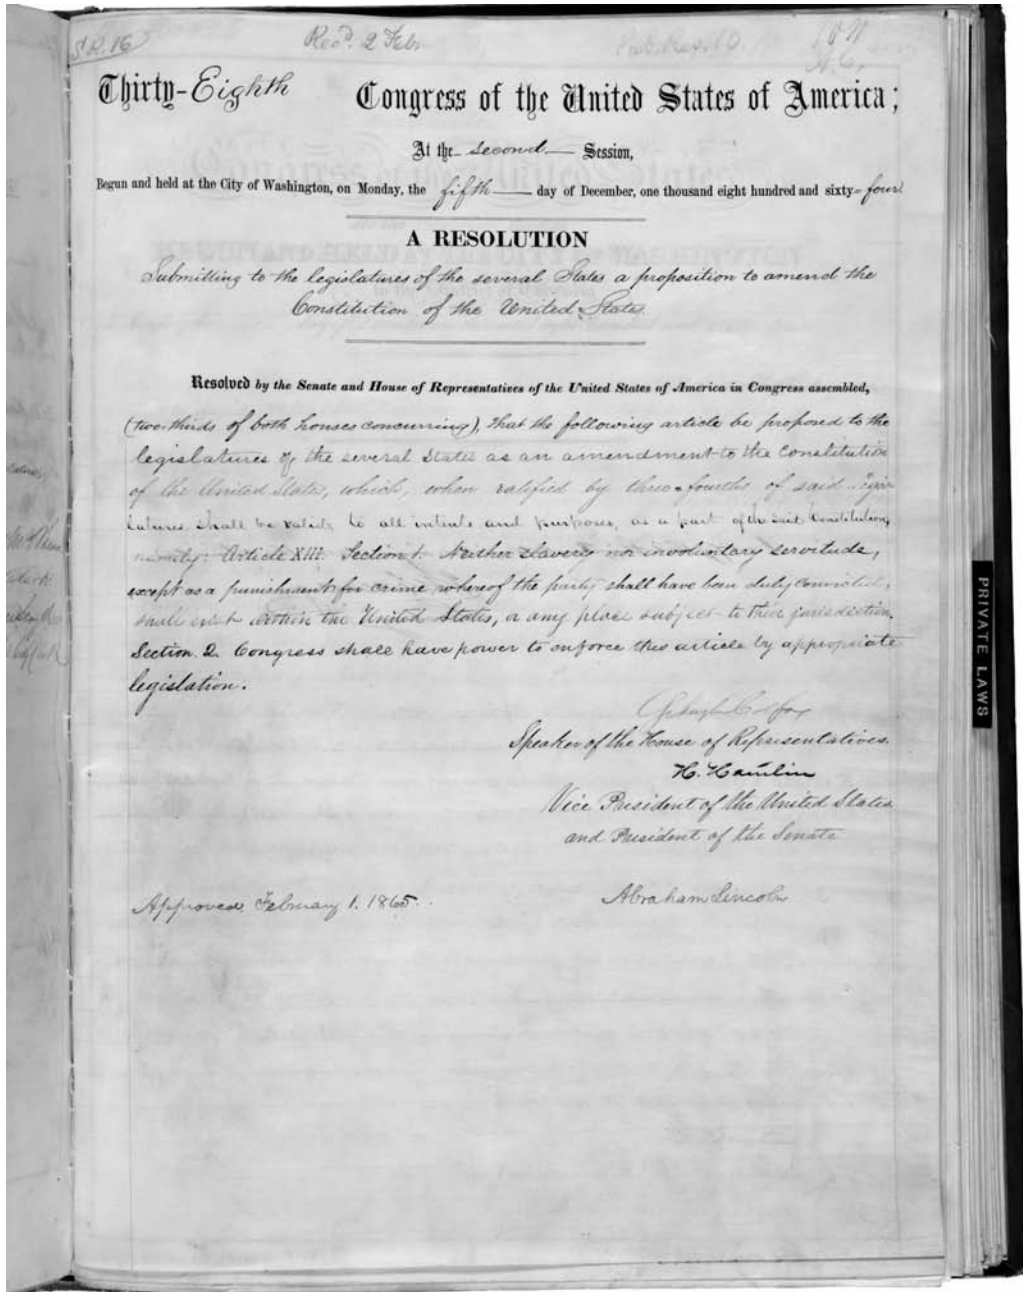 S.R. 16
Rec'd. 2 Feb.
Thirty-Eighth Congress of the United States of America;
At the second Session,
Begun and held at the City of Washington, on Monday, the fifth day of December, one thousand eight hundred and sixty-four.
A RESOLUTION
Submitting to the legislatures of the several States a proposition to amend the
Constitution of the United States.
Resolved by the Senate and House of Representatives of the United States of America in Congress assembled,
(two-thirds of both houses concurring), that the following article be proposed to the
legislatures of the several States as an amendment to the Constitution
of the United States, which, when ratified by three-fourths of said Legis-
latures shall be valid, to all intents and purposes, as a part of the said Constitution,
namely: Article XIII. Section 1. Neither slavery nor involuntary servitude,
except as a punishment for crime whereof the party shall have been duly convicted,
shall exist within the United States, or any place subject to their jurisdiction.
Section. 2. Congress shall have power to enforce this article by appropriate
legislation.
Schuyler Colfax
Speaker of the House of Representatives.
H. Hamlin
Vice President of the United States
and President of the Senate
Approved, February 1. 1865.
Abraham Lincoln
PRIVATE LAWS